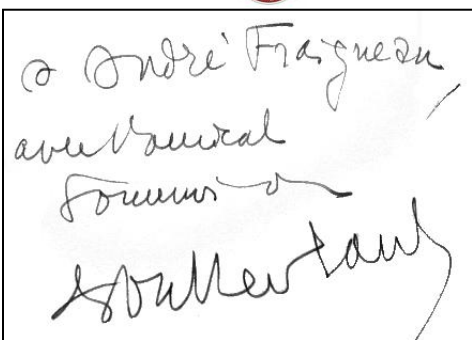 à André Fraigneau,
avec l'amical
souvenir de
Montherlant